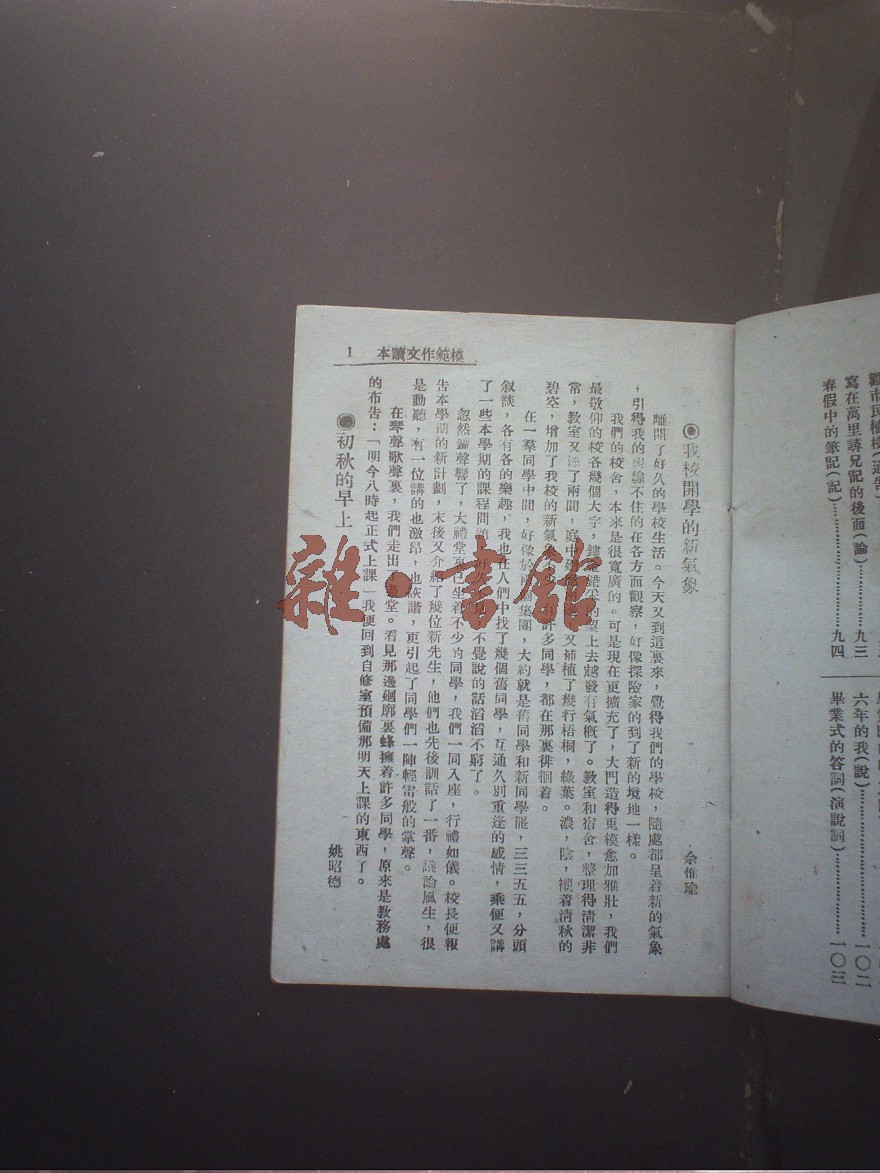 勸市民植樹(通告)
寫在萬里尋兄記的後面(論)⋯⋯九三
春假中的筆記(記)⋯⋯九四
六年的我(說)⋯⋯一〇二
畢業式的答詞(演說詞)⋯⋯一〇三
本讀文作範模 1
我校開學的新氣象
余惟瑜
離開了好久的學校生活。今天又到這裏來,覺得我們的學校,隨處都呈着新的氣象
,引得我的視線不住的在各方面觀察,好像探險家的到了新的境地一樣。
我們的校舍,本來是很寬廣的。可是現在更擴充了,大門造得更模愈加雅壯,我們
最敬仰的校各幾個大字,鏤金錯采的望上去越發有氣概了。教室和宿舍,整理得清潔非
常,教室又添了兩間,庭中 又補植了幾行梧桐,綠葉。濃,陰,襯着清秋的
碧空,增加了我校的新氣象不少,有許多同學,都在那裏徘徊着。
在一羣同學中間,好像於兩個集團,大約就是舊同學和新同學罷,三三五五,分頭
叙談,各有各的樂趣,我也在人們中找了幾個舊同學,互通久別重逢的感情,乘便又講
了一些本學期的課程問題,好久 ,不覺說的話滔滔不窮了。
忽然鐘聲響了,大禮堂裏已坐着不少的同學,我們一同入座,行禮如儀。校長便報
告本學期的新計劃,末後又介紹了幾位新先生,他們也先後訓話了一番,議論風生,很
是動聽,有一位講的也激昂,也詼諧,更引起了同學們一陣輕雷般的掌聲。
在琴聲歌聲裏,我們走出了禮堂。看見那邊廻廓裏蜂擁着許多同學,原來是教務處
的布告:「明今八時起正式上課」我便回到自修室預備那明天上課的東西了。
初秋的早上
姚昭德
雜·書館